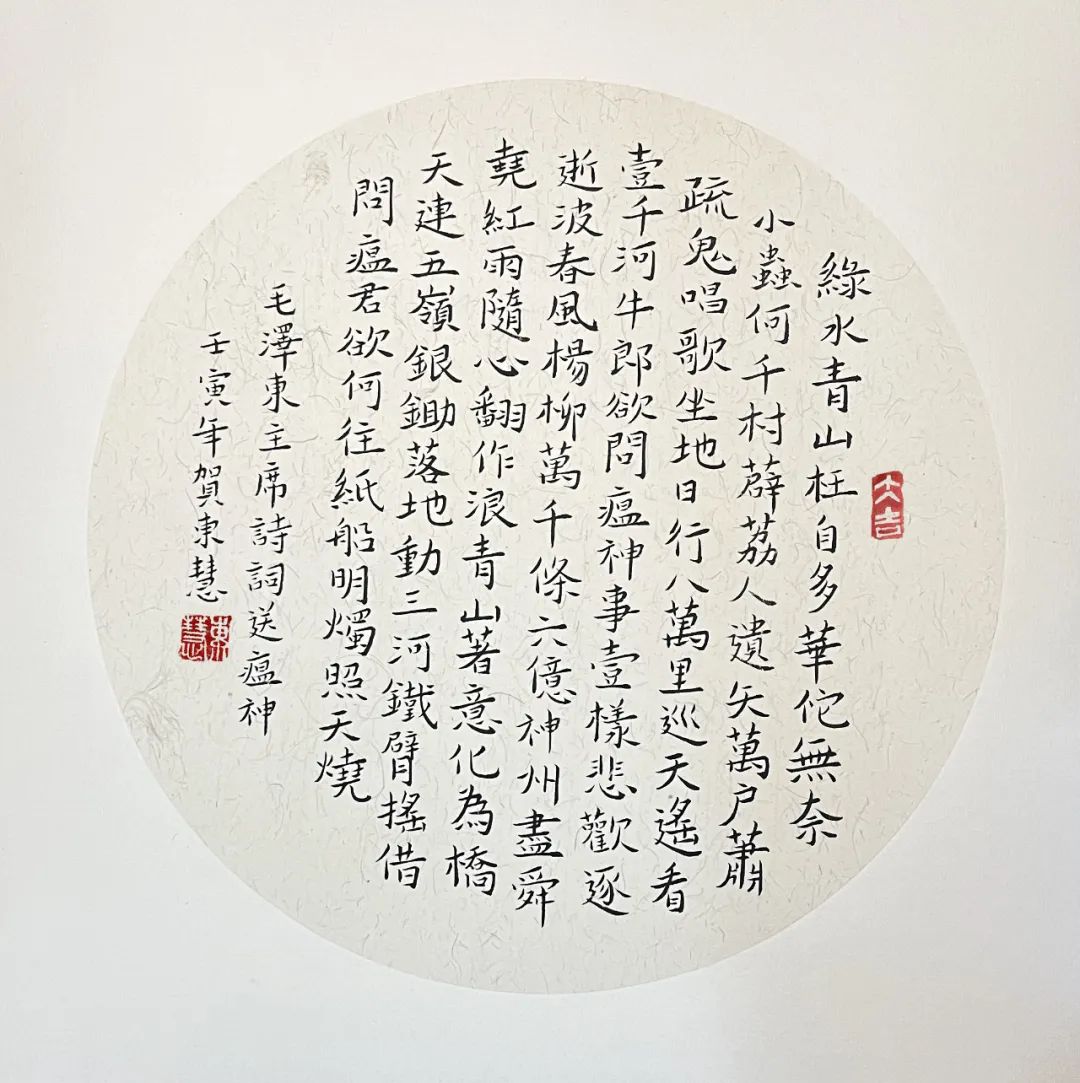 綠水青山枉自多華佗無奈
小蟲何千村薜荔人遺矢萬户蕭
疏鬼唱歌坐地日行八萬里巡天遙看
壹千河牛郎欲問瘟神事壹樣悲歡逐
逝波春風楊柳萬千條六億神州盡舜
堯紅雨隨心翻作浪青山著意化為橋
天連五嶺銀鋤落地動三河鐵臂搖借
問瘟君欲何往紙船明燭照天燒
毛澤東主席詩詞送瘟神
壬寅年賀東慧
大吉
東慧